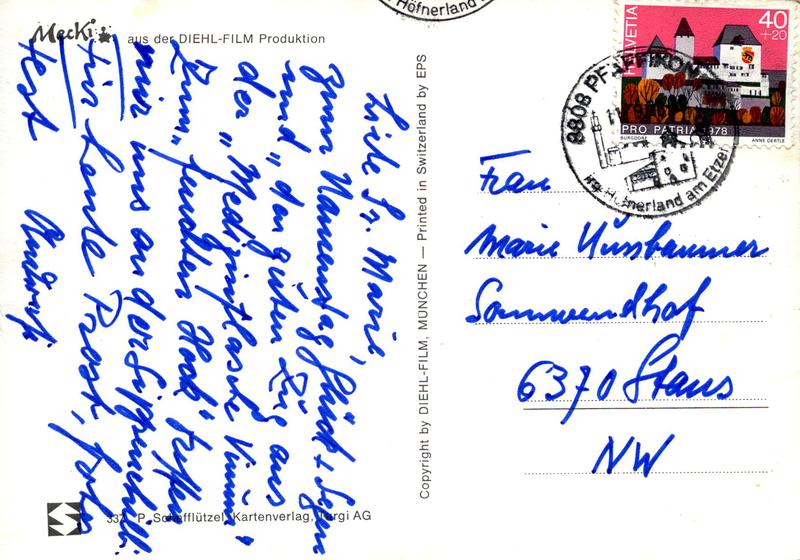 Mecki aus der DIEHL-FILM Produktion
Liebe Fr. Marie,
zum Namenstag Glück + Segen
und „den guten Zug aus
der „Medizinflasche
Zum „feuchten Hock“ treffen
wir uns an der
Für heute Prost, frohes
Fest
Copyright by DIEHL-FILM, MÜNCHEN — Printed in Switzerland by EPS
P. Schafflützel, Kartenverlag, Turgi AG
HELVETIA
40
+20
PRO PATRIA 1978
BURGDORF
ANNE OERTLE
8808 PFÄFFIKON
Höfnerland am Etzel
Höfnerland
Frau
Marie Nussbaumer
Sonnwendhof
6370 Stans
NW